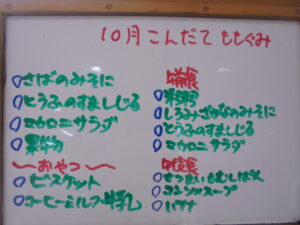 10月こんだて ももぐみ
さばのみそに
とうふのすましじる
マカロニサラダ
果物
〜おやつ〜
ビスケット
コーヒーミルク・牛乳
午前食
果物
しろみざかなのみそに
とうふのすましじる
マカロニサラダ
午後食
さつまいもむしぱん
コンソメスープ
バナナ